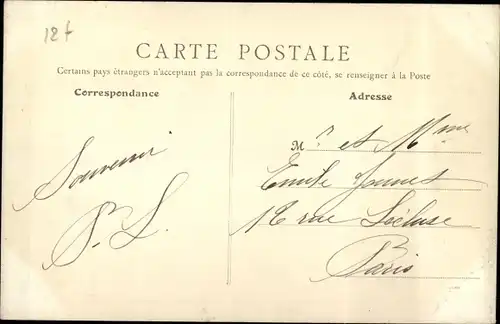 18f
CARTE POSTALE
Certains pays étrangers n'acceptant pas la correspondance de ce côté, se renseigner à la Poste
Correspondance
Adresse
Souvenir
P. L.
M r et Mme
Emile
18 rue Lécluse
Paris